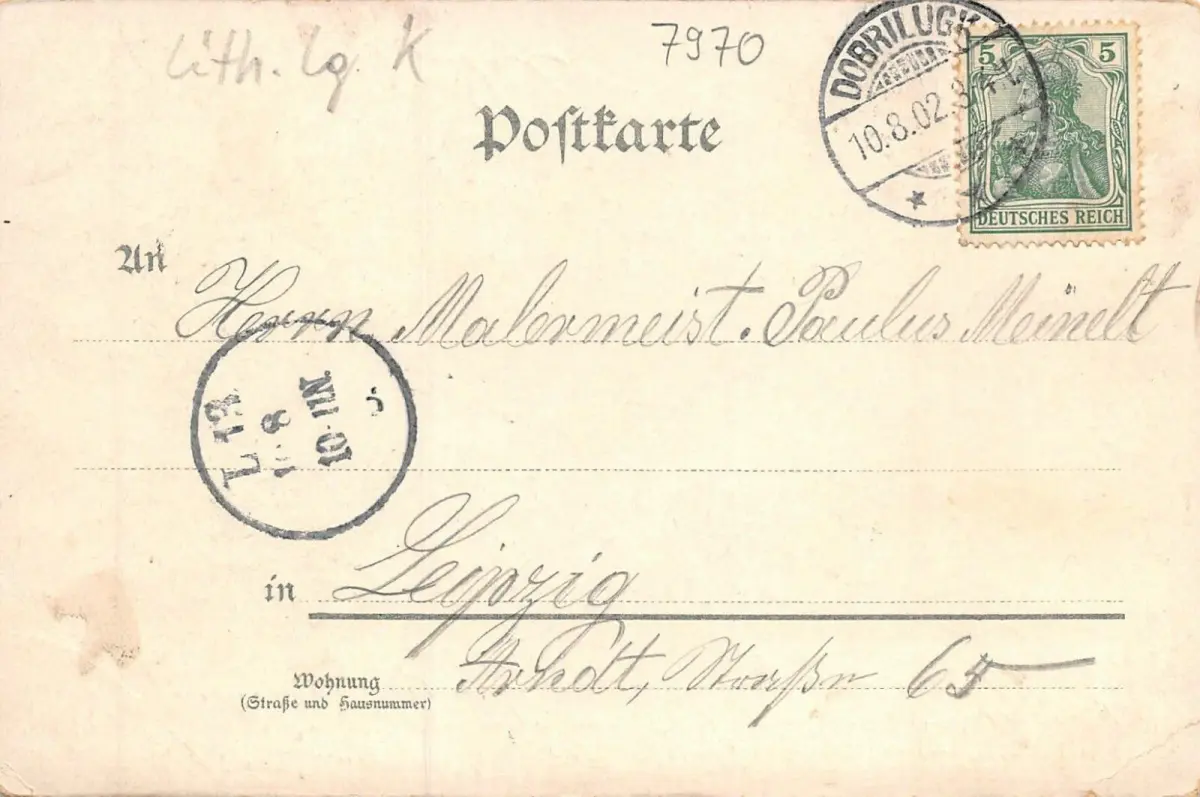 Lith. lg. K
7970
DOBRILUGK
10.8.02. 8-
5 5
DEUTSCHES REICH
Postkarte
An
Herrn Malermeist. Paulus Meinelt
L 13
8
10-11N.
in Leipzig
Arndt, Straße 65
Wohnung
(Straße und Hausnummer)